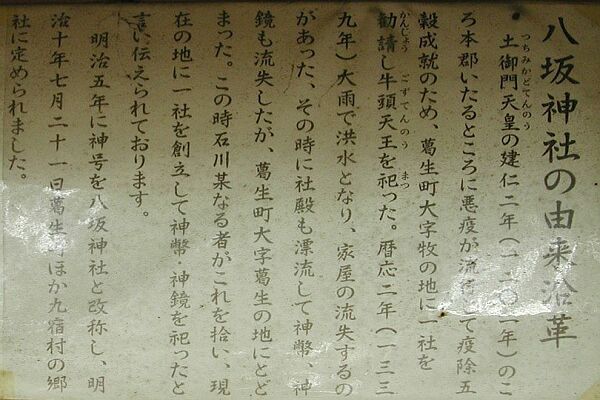 八坂神社の由来沿革
つちみかどてんのう
土御門天皇の建仁二年(一二〇一年)のこ
ろ本郡いたるところに悪疫が流行して疫除五
穀成就のため、葛生町大字牧の地に一社を
かんじょう ごずてんのう まつ
勧請し牛頭天王を祀った。暦応二年(一三三
九年)大雨で洪水となり、家屋の流失するの
があった、その時に社殿も漂流して神幣、神
鏡も流失したが、葛生町大字葛生の地にとど
まった。この時石川某なる者がこれを拾い、現
在の地に一社を創立して神幣・神鏡を祀ったと
言い伝えられております。
明治五年に神号を八坂神社と改称し、明
治十年七月二十一日葛生町ほか九宿村の郷
社に定められました。